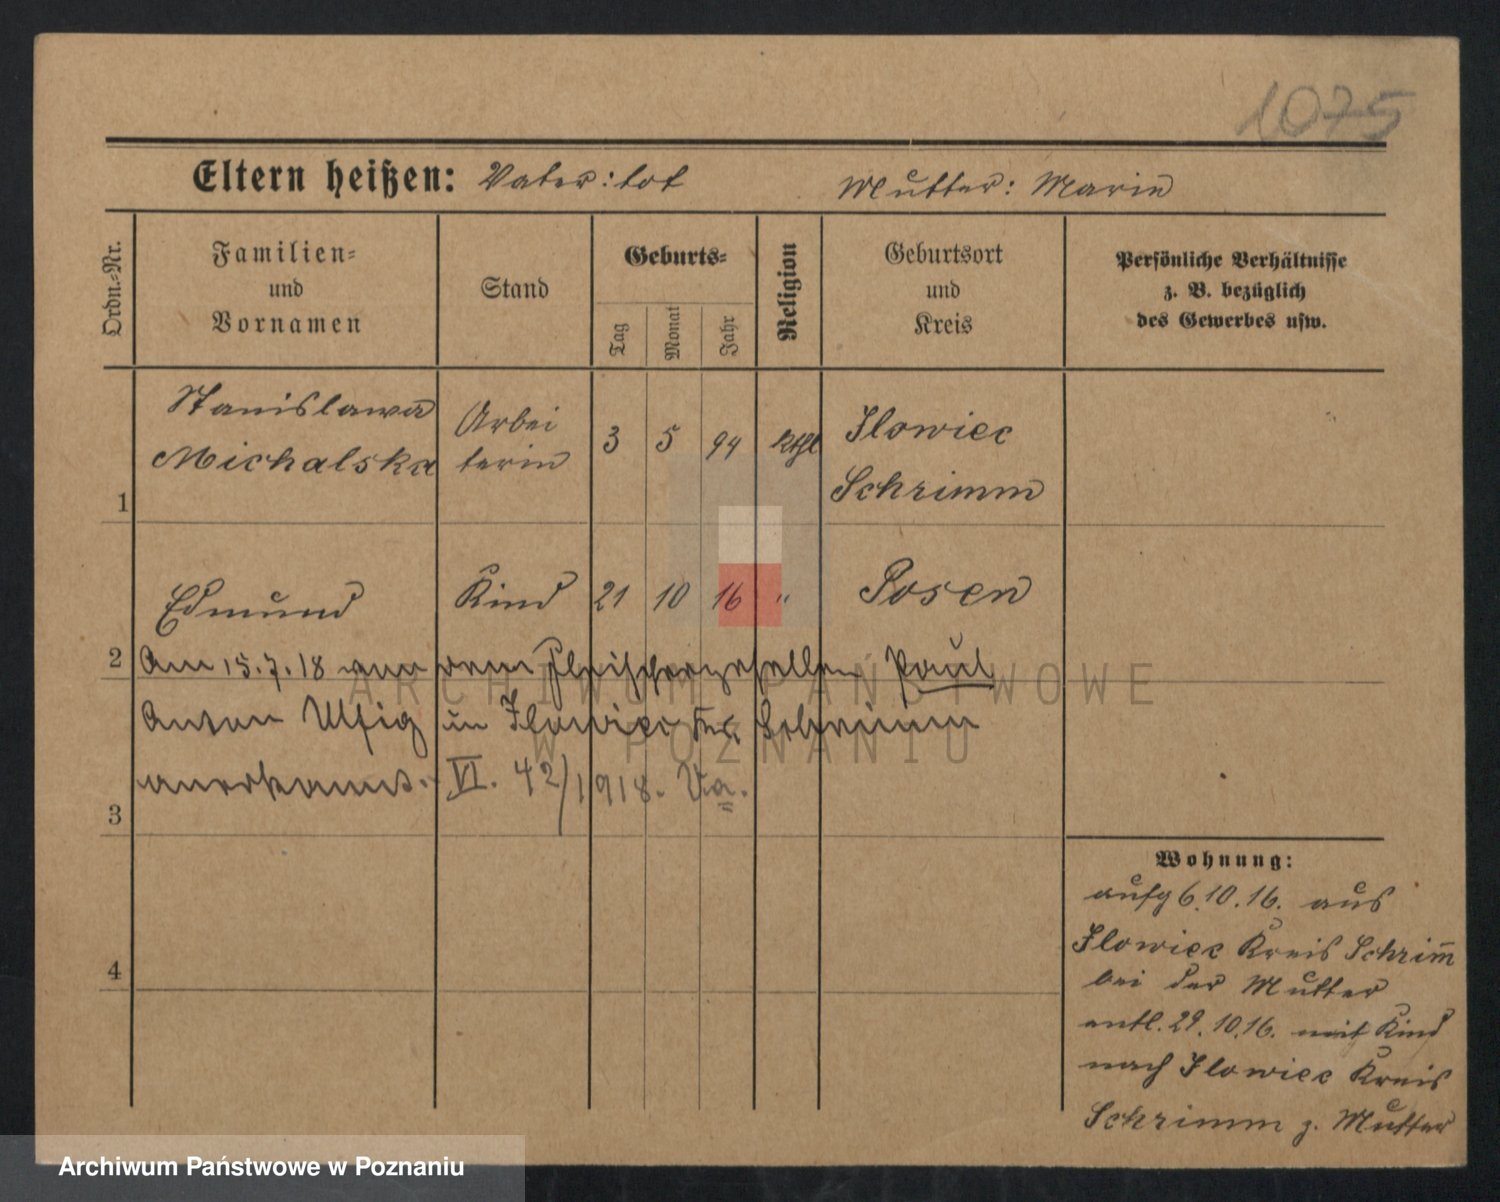 1075
Eltern heißen: Vater: tot Mutter: Marie
Ordn.-Nr.
Familien-
und
Vornamen
Stand
Geburts-
Tag
Monat
Jahr
Religion
Geburtsort
und
Kreis
Persönliche Verhältnisse
z. B. bezüglich
des Gewerbes usw.
Stanislawa Arbei
Michalska terin 3 5 94 kthl Ilowiec
1 Schrimm
Edmund Kind 21 10 16 " Posen
2 Am 15.7.18 von dem Fleischergesellen Paul
Anton Ulfig in Ilowiec Kr. Schrimm
anerkannt. VI. 42/1918. Va.
3
Wohnung:
aufg 6.10.16. aus
Ilowiec Kreis Schrim̄
bei der Mutter
4
entl. 29.10.16. mit Kind
nach Ilowiec Kreis
Schrimm z. Mutter
ARCHIWUM PAŃSTWOWE
W POZNANIU
Archiwum Państwowe w Poznaniu